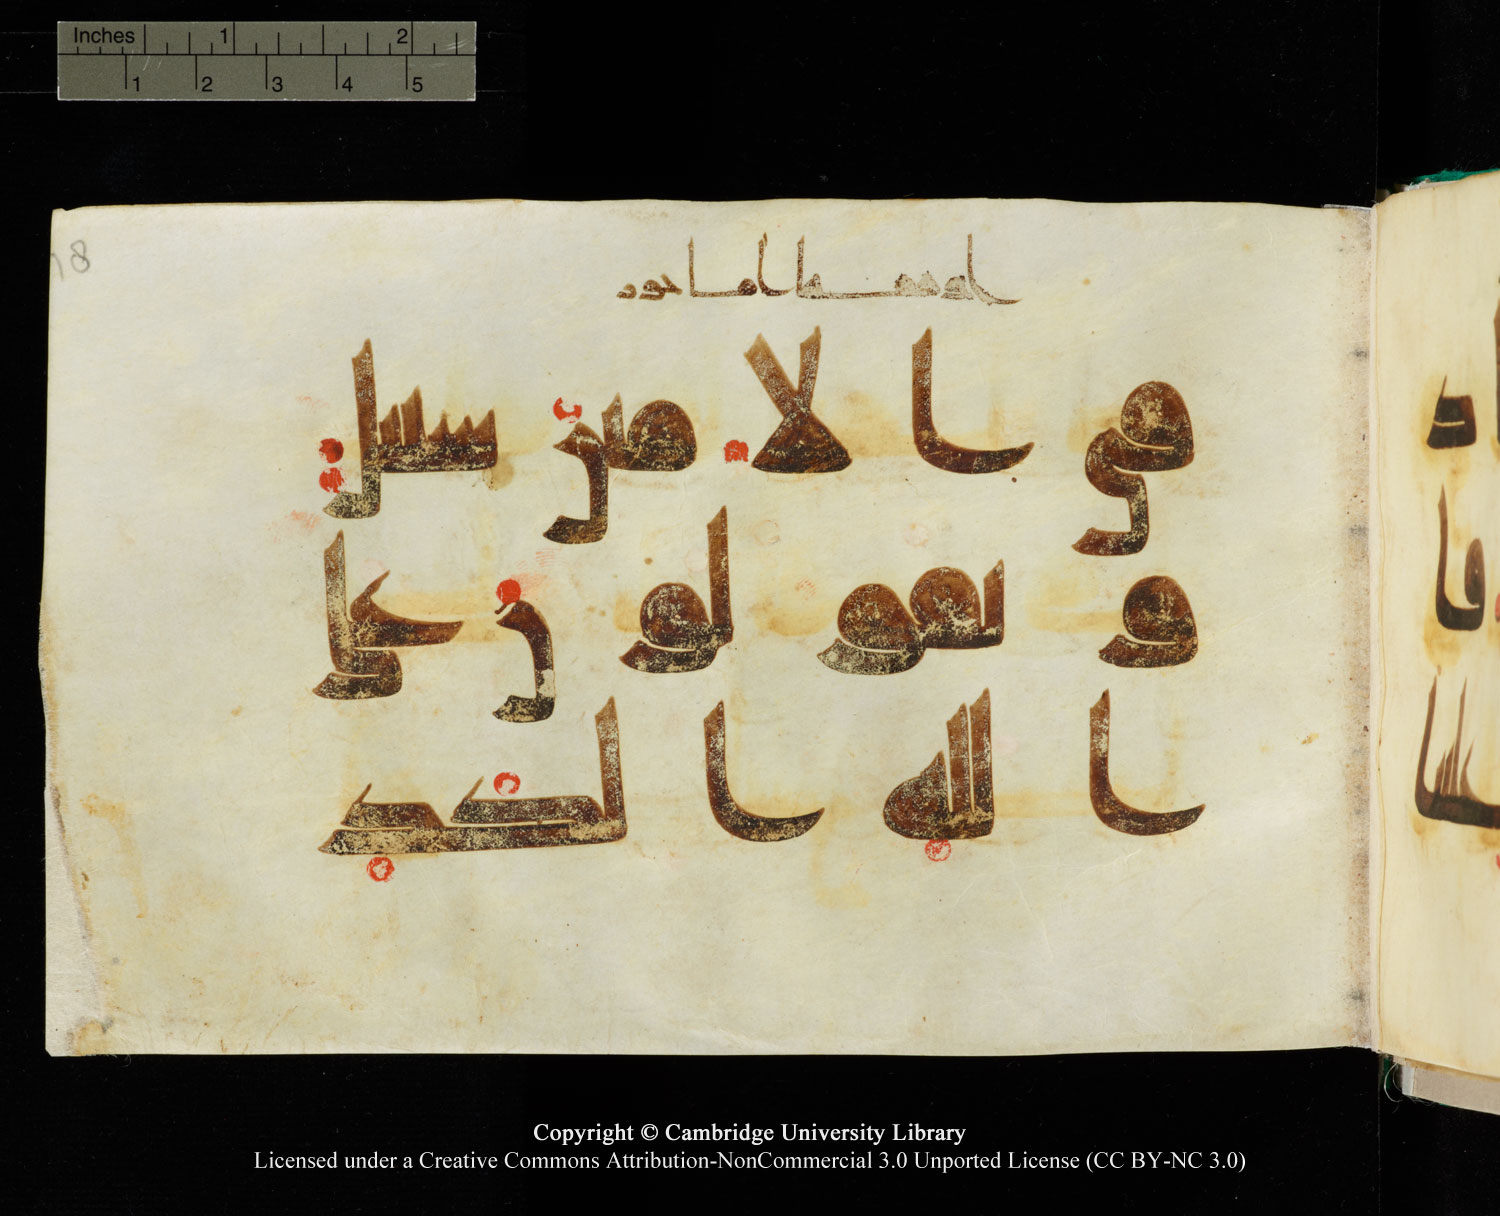 Inches 1 2
1 2 3 4 5
18
اماجور
في الامين سبيل
ويقولون على
الله الكذب
Copyright © Cambridge University Library
Licensed under a Creative Commons Attribution-NonCommercial 3.0 Unported License (CC BY-NC 3.0)